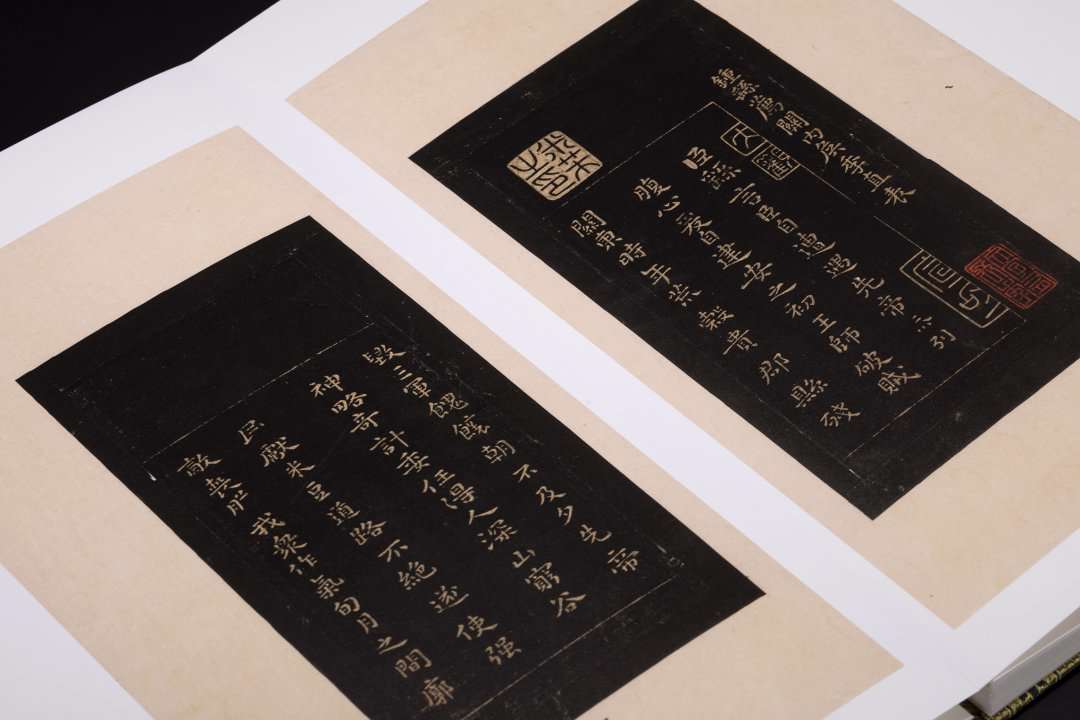 鍾繇薦關內侯季直表
臣繇言臣自遭遇先帝忝列
腹心爰自建安之初王師破賊
關東時年荒穀貴郡縣殘
米芾之印
毀三軍餽饟朝不及夕先帝
神略奇計委任得人深山窮谷
民獻米豆道路不絕遂使强
敵喪胆我衆作氣旬月之間廓